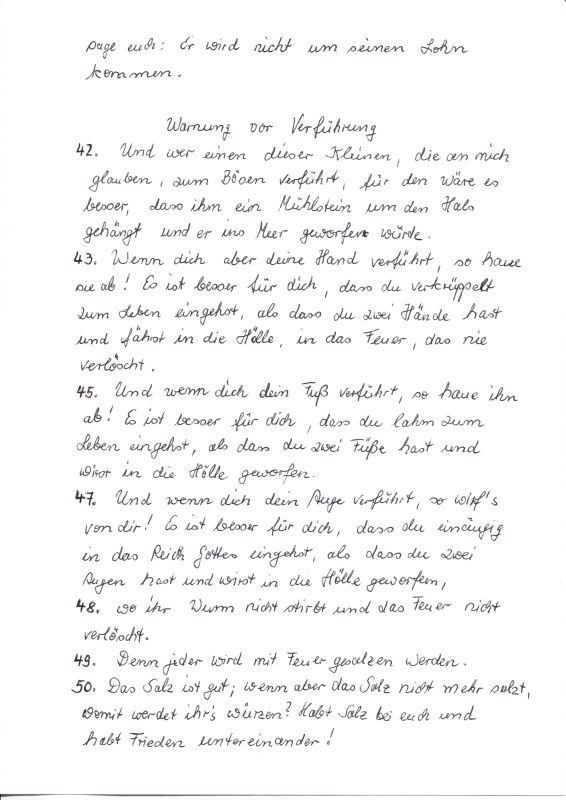 sage euch: Er wird nicht um seinen Lohn
kommen.
Warnung vor Verführung
42. Und wer einen dieser Kleinen, die an mich
glauben, zum Bösen verführt, für den wäre es
besser, dass ihm ein Mühlstein um den Hals
gehängt und er ins Meer geworfen würde.
43. Wenn dich aber deine Hand verführt, so haue
sie ab! Es ist besser für dich, dass du verkrüppelt
zum Leben eingehst, als dass du zwei Hände hast
und fährst in die Hölle, in das Feuer, das nie
verlöscht.
45. Und wenn dich dein Fuß verführt, so haue ihn
ab! Es ist besser für dich, dass du lahm zum
Leben eingehst, als dass du zwei Füße hast und
wirst in die Hölle geworfen.
47. Und wenn dich dein Auge verführt, so wirf's
von dir! Es ist besser für dich, dass du einäugig
in das Reich Gottes eingehst, als dass du zwei
Augen hast und wirst in die Hölle geworfen,
48. wo ihr Wurm nicht stirbt und das Feuer nicht
verlöscht.
49. Denn jeder wird mit Feuer gesalzen werden.
50. Das Salz ist gut; wenn aber das Salz nicht mehr salzt,
womit werdet ihr's würzen? Habt Salz bei euch und
habt Frieden untereinander!